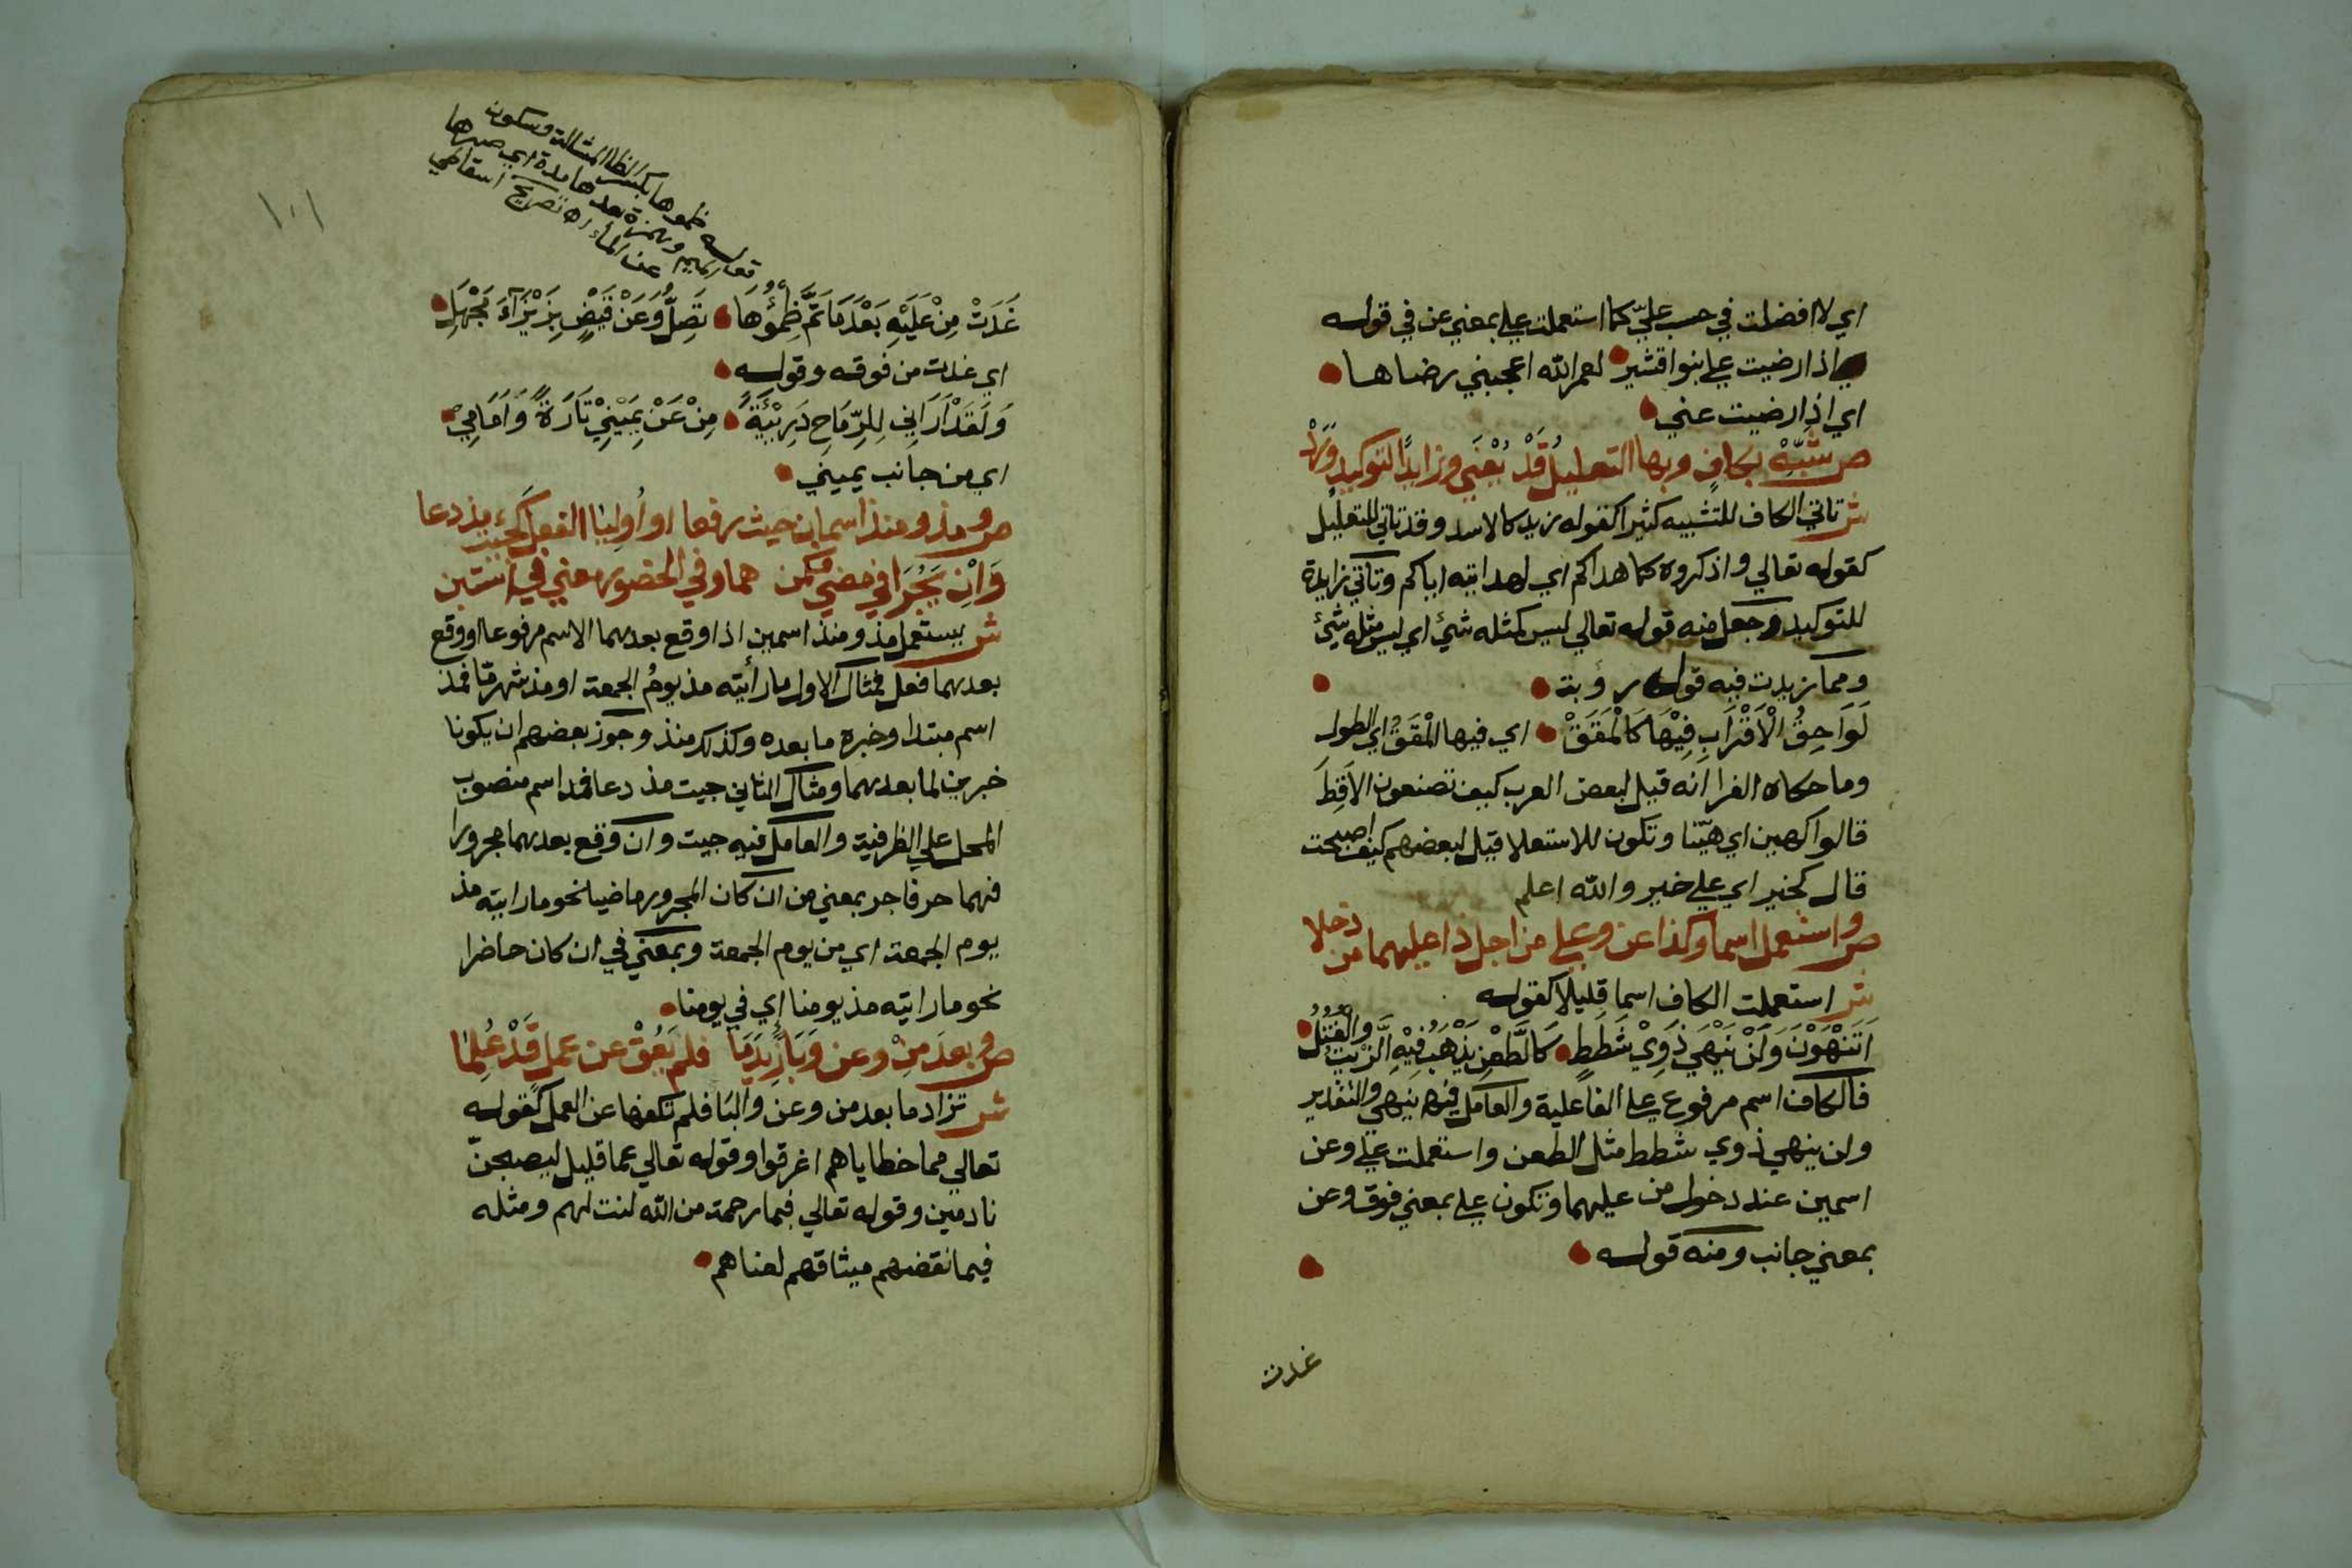 اي لا افضلت في حسب عليّ كما استعملت علي بمعني عن في قوله
اذا رضيت علي بنوا قشير لعمر الله اعجبني رضاها
اي اذا رضيت عني
ص شَبِّهْ بكافٍ وبها التعليلُ قَدْ يُعْنَي وزايدًا لتوكيدٍ وَرَدْ
ش تاتي الكاف للتشبيه كثيرا كقوله زيد كالاسد وقد تاتي للتعليل
كقوله تعالي واذكروه كما هداكم اي لهدايته اياكم وتاتي زايدة
للتوكيد وجعل منه قوله تعالي ليس كمثله شيئ اي ليس مثله شيئ
ومما زيدت فيه قول رؤبة
لَوَاحِقُ الْاَقْرَابِ فِيْهَا كَالْمَقَقْ اي فيها المْقَقُ اي الطول
وما حكاه الفرا انه قيل لبعض العرب كيف تصنعون الاَقِطَ
قالوا كهين اي هيّنا وتكون للاستعلا قيل لبعضهم كيف اصبحت
قال كخير اي علي خير والله اعلم
ص واستعمل اسما وكذا عن وعلي من اجل ذا عليهما من دخلا
ش استعملت الكاف اسما قليلا كقوله
اَتَنْهَوْنَ وَلَنْ يَنْهَي ذَوِيْ شَطَطٍ كَالطَّعْنِ يَذْهَبُ فِيْهِ الزَّيْتُ وَالْفُتُلُ
فالكاف اسم مرفوع علي الفاعلية والعامل فيه ينهي والتقدير
ولن ينهي ذوي شطط مثل الطعن واستعملت علي وعن
اسمين عند دخول من عليهما وتكون علي بمعني فوق وعن
بمعني جانب ومنه قوله
غدت
١٠١
قوله ظموها بكسر الظا المشالة وسكون
الميم وهمزة بعدها مدة اي صبرها
عن الماء اه تصريح اسقاطي
غَدَتْ مِنْ عَلَيْهِ بَعْدَ مَا تَمَّ ظِمْؤُهَا تَصِلُّ وَعَنْ قَيْضٍ بِزَيْزَآءَ مَجْهَلِ
اي غدت من فوقه وقوله
وَلَقَدْ اَرَانِي لِلرِّمَاحِ دَرِيْئَةً مِنْ عَنْ يَمِيْنِيْ تَارَةً وَاَمَامِيْ
اي من جانب يميني
ص ومذ ومنذ اسمان حيث رفعا او اُولِيَا الفعلَ كجيت مذ دعا
وَاِنْ يَجُرَّا في مضي فكمن هما وفي الحضور معني في استبن
ش يستعمل مذ ومنذ اسمين اذا وقع بعدهما الاسم مرفوعا او وقع
بعدهما فعل فمثال الاول ما رأيته مذ يومُ الجمعة او مذ شهرنا فمذ
اسم مبتدا وخبره ما بعده وكذلك منذ وجوز بعضهم ان يكونا
خبرين لما بعدهما ومثال الثاني جيت مذ دعا فمذ اسم منصوب
المحل علي الظرفية والعامل فيه جيت وان وقع بعدهما مجرورا
فهما حرفا جر بمعني من ان كان المجرور ماضيا نحو ما رايته مذ
يوم الجمعة اي من يوم الجمعة وبمعني في ان كان حاضرا
نحو ما رايته مذ يومنا اي في يومنا
ص وبعدَ مِنْ وعن وَبَا زِيْدَ مَا فلم يَعُقْ عن عمل قَدْ عُلِمَا
ش تزاد ما بعد من وعن والبا فلم تكفها عن العمل كقوله
تعالي مما خطاياهم اغرقوا وقوله تعالي عما قليل ليصبحنّ
نادمين وقوله تعالي فبما رحمة من الله لنت لهم ومثله
فبما نقضهم ميثاقهم لعناهم